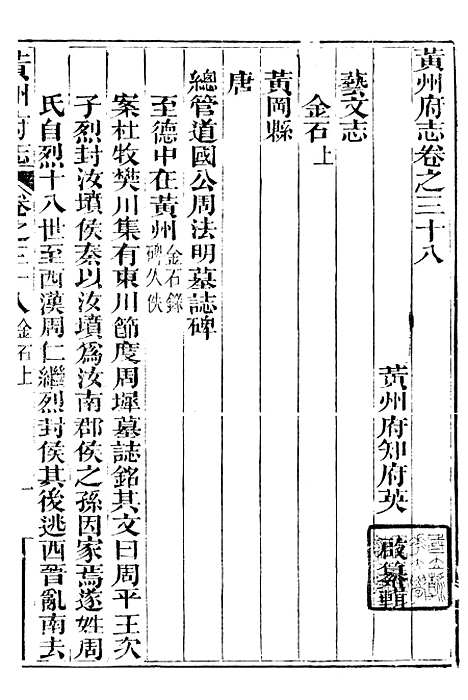 黃州府志卷之三十八
黃州府知府英啟纂輯
藝文志
金石上
黃岡縣
唐
總管道國公周法明墓誌碑
至德中在黃州金石錄碑久佚
案杜牧樊川集有東川節度周墀墓誌銘其文曰周平王次
子烈封汝墳侯秦以汝墳為汝南郡侯之孫因家焉遂姓周
氏自烈十八世至西漢周仁繼烈封侯其後逃西晉亂南去
黃州府志 卷之三十八 金石上 一